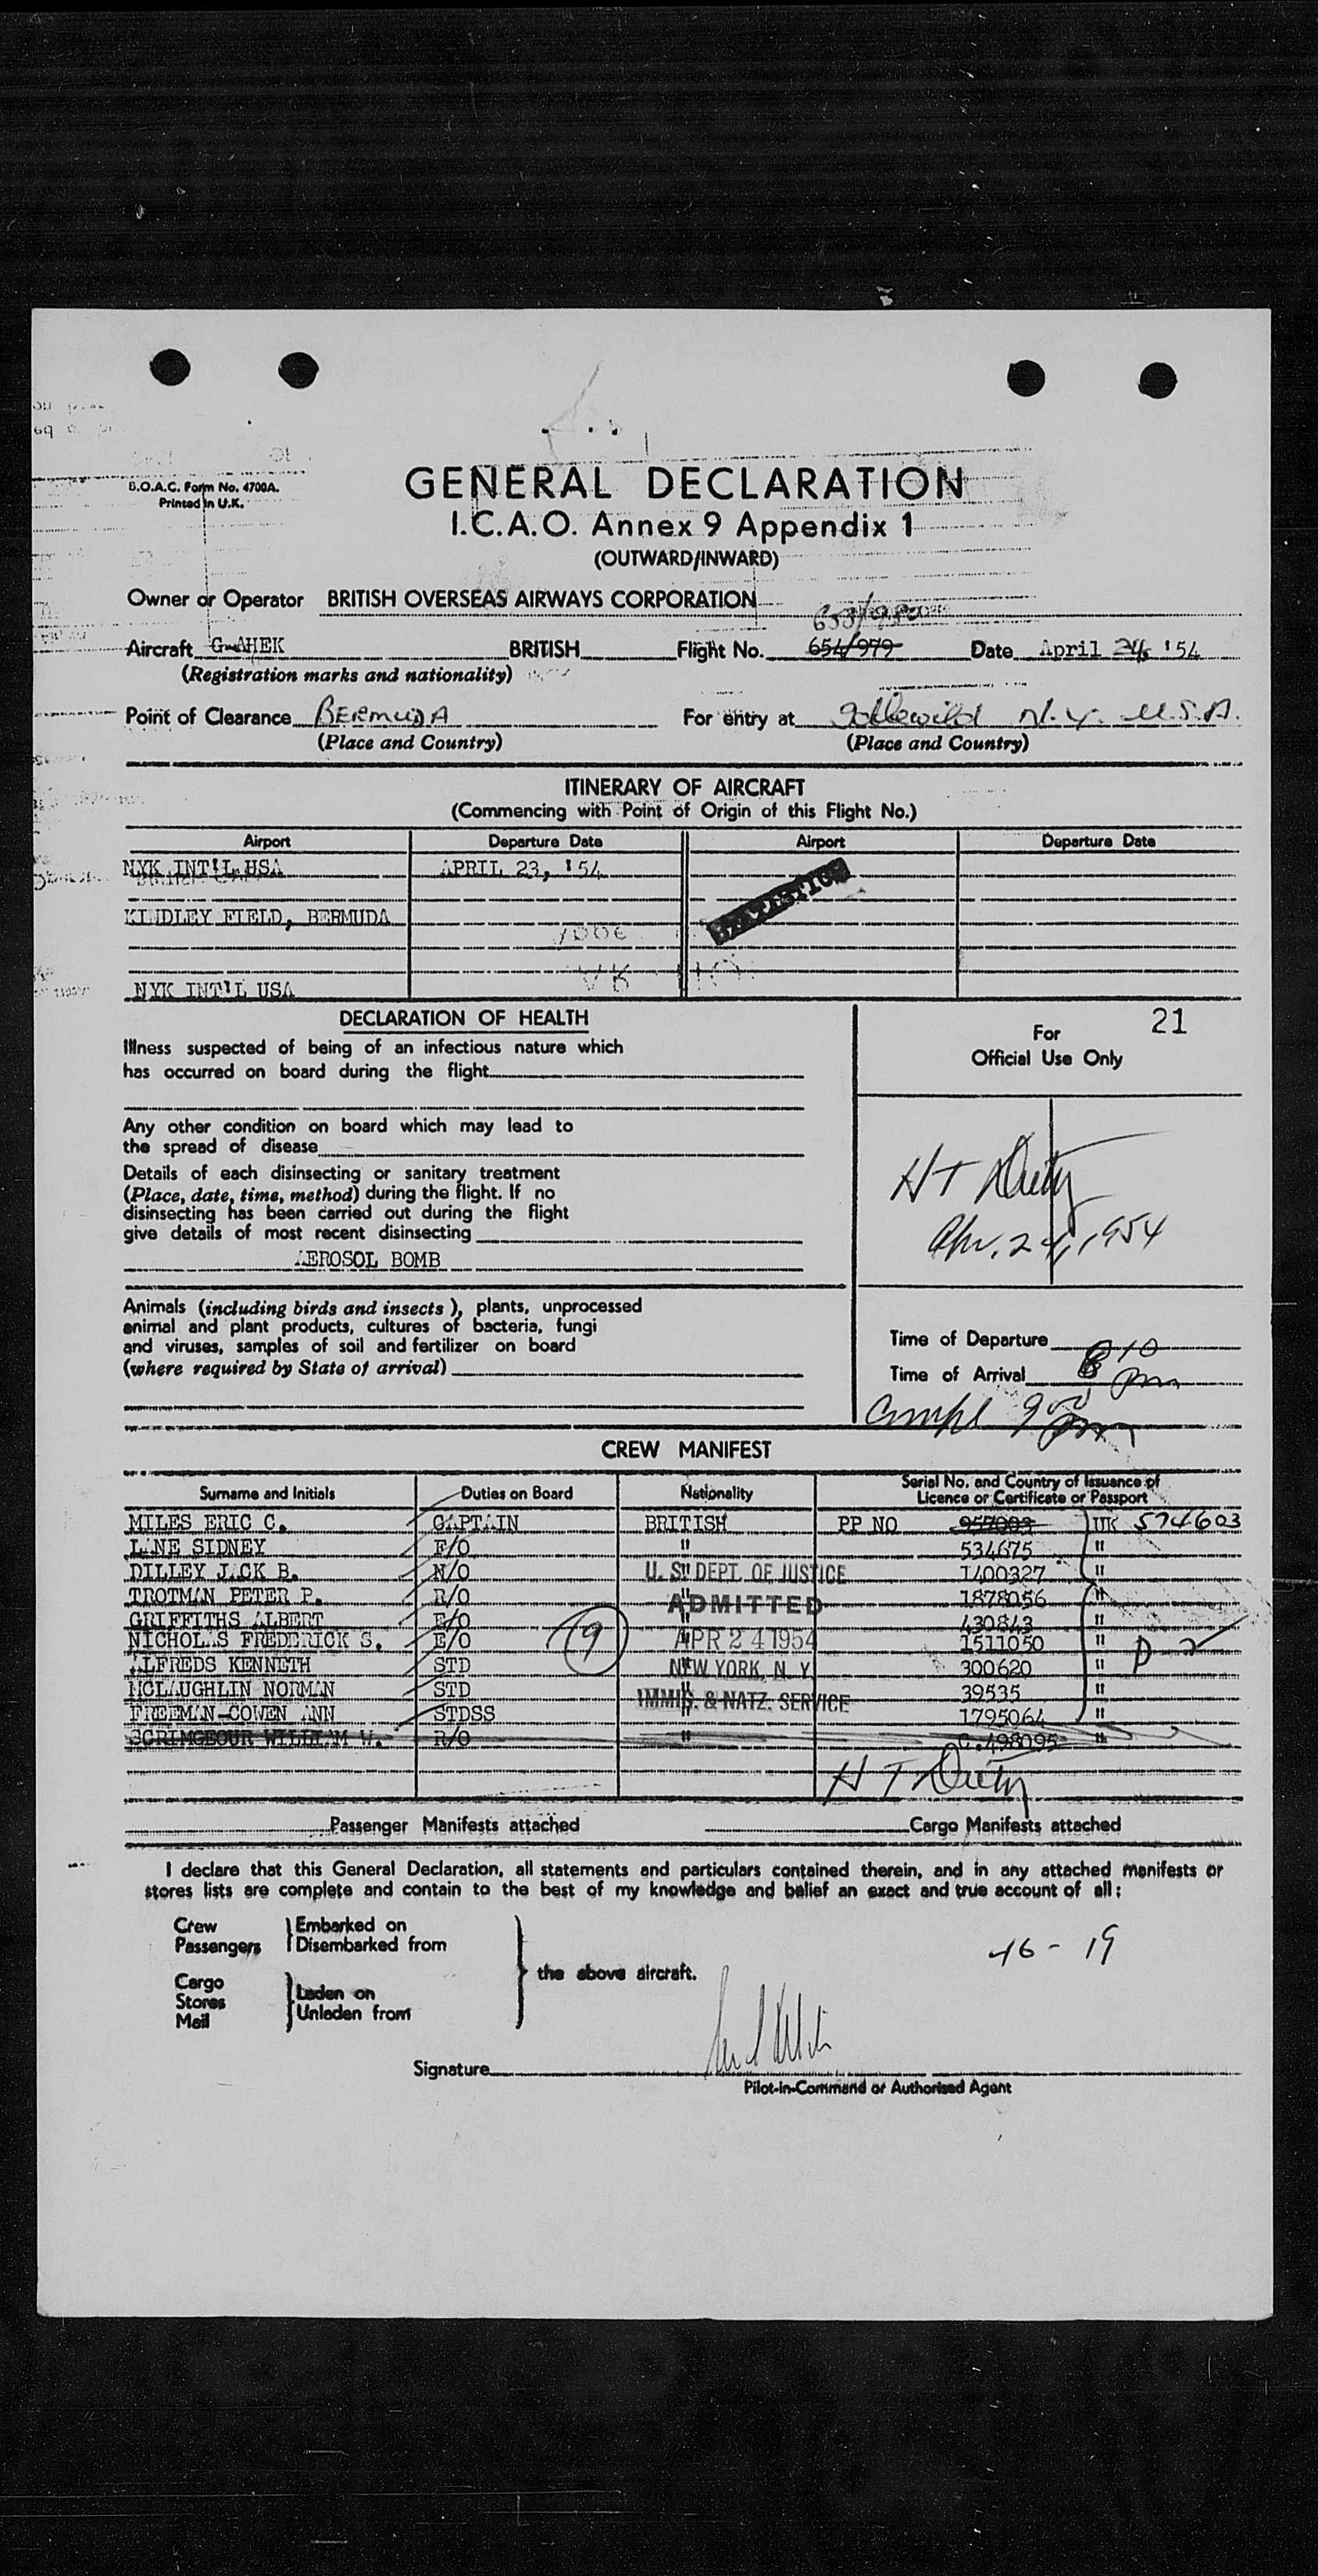 B.O.A.C. Form No. 4700A.
Printed in U.K.
GENERAL DECLARATION
I.C.A.O. Annex 9 Appendix 1
(OUTWARD/INWARD)
Owner or Operator BRITISH OVERSEAS AIRWAYS CORPORATION
653/980
Aircraft G-AHEK BRITISH Flight No. 654/979 Date April 24, '54
(Registration marks and nationality)
Point of Clearance BERMUDA For entry at Idlewild N.Y. U.S.A.
(Place and Country) (Place and Country)
ITINERARY OF AIRCRAFT
(Commencing with Point of Origin of this Flight No.)
Airport Departure Date Airport Departure Date
NYK INT'L USA APRIL 23, '54
KINDLEY FIELD, BERMUDA
NYK INT'L USA
DECLARATION OF HEALTH
Illness suspected of being of an infectious nature which
has occurred on board during the flight
Any other condition on board which may lead to
the spread of disease
Details of each disinsecting or sanitary treatment
(Place, date, time, method) during the flight. If no
disinsecting has been carried out during the flight
give details of most recent disinsecting
AEROSOL BOMB
Animals (including birds and insects), plants, unprocessed
animal and plant products, cultures of bacteria, fungi
and viruses, samples of soil and fertilizer on board
(where required by State of arrival)
For 21
Official Use Only
Apr. 24, 1954
Time of Departure
Time of Arrival 8 10 pm
Compl 9 00 pm
CREW MANIFEST
Surname and Initials Duties on Board Nationality Serial No. and Country of Issuance of Licence or Certificate or Passport
MILES ERIC C. CAPTAIN BRITISH PP NO 957003 UK 574603
LANE SIDNEY F/O " 534675 "
DILLEY JACK B. N/O " 1400327 "
TROTMAN PETER P. R/O " 1878056 "
GRIFFITHS ALBERT E/O " 430843 "
NICHOLAS FREDERICK S. E/O " 1511050 "
ALFREDS KENNETH STD " 300620 "
MCLAUGHLIN NORMAN STD " 39535 "
FREEMAN-COWEN ANN STDSS " 1795064 "
SCRIMGEOUR WILLIAM W. R/O " C.498095 "
9
D-2
U.S. DEPT. OF JUSTICE
ADMITTED
APR 24 1954
NEW YORK, N.Y.
IMMIG. & NATZ. SERVICE
Passenger Manifests attached Cargo Manifests attached
I declare that this General Declaration, all statements and particulars contained therein, and in any attached manifests or
stores lists are complete and contain to the best of my knowledge and belief an exact and true account of all:
Crew Embarked on
Passengers Disembarked from
Cargo
Stores Laden on
Mail Unladen from
the above aircraft.
46 - 19
Signature
Pilot-in-Command or Authorised Agent